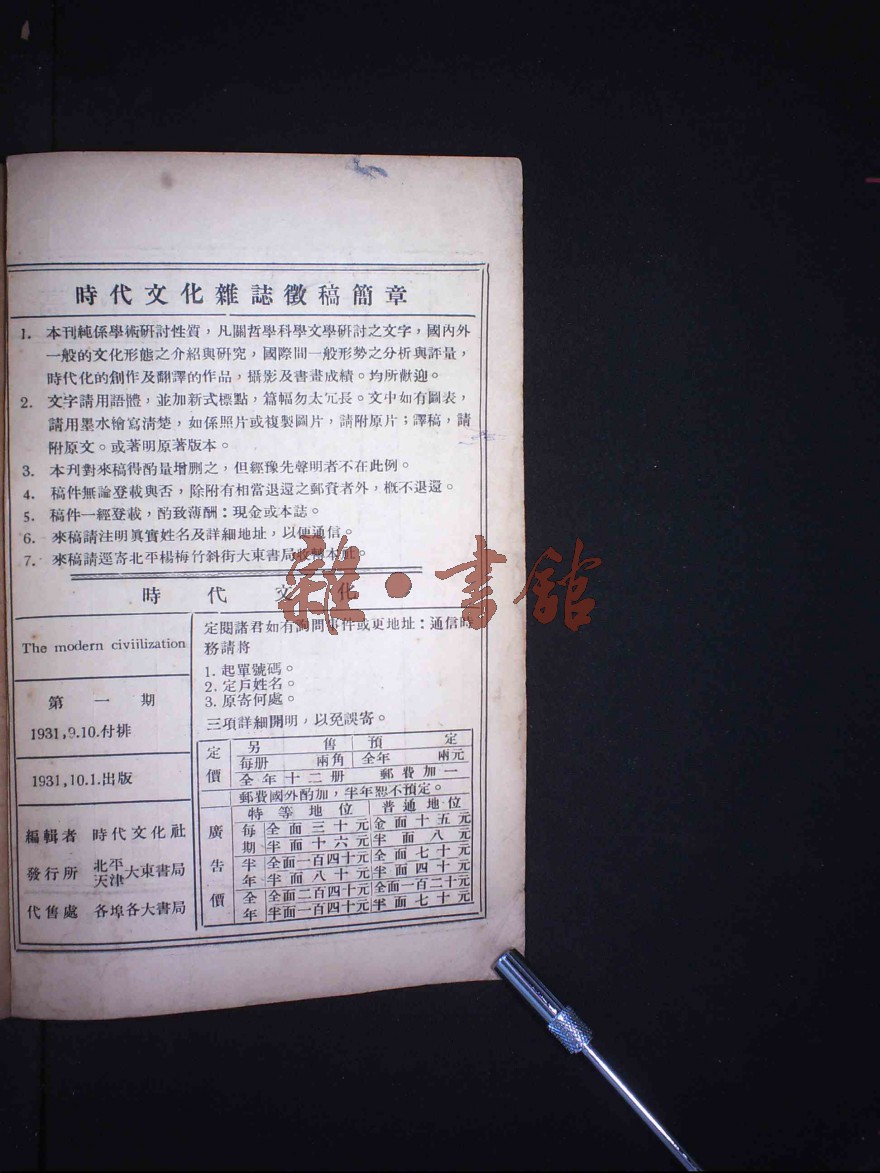 時代文化雜誌徵稿簡章
1. 本刊純係學術硏討性質，凡關哲學科學文學硏討之文字，國內外
一般的文化形態之介紹與硏究，國際間一般形勢之分析與評量，
時代化的創作及翻譯的作品，攝影及書畫成績。均所歡迎。
2. 文字請用語體，並加新式標點，篇幅勿太冗長。文中如有圖表，
請用墨水繪寫清楚，如係照片或複製圖片，請附原片；譯稿，請
附原文。或著明原著版本。
3. 本刊對來稿得酌量增删之，但經豫先聲明者不在此例。
4. 稿件無論登載與否，除附有相當退還之郵資者外，概不退還。
5. 稿件一經登載，酌致薄酬：現金或本誌。
6. 來稿請注明眞實姓名及詳細地址，以便通信。
7. 來稿請逕寄北平楊梅竹斜街大東書局收轉本社。
雜·書舘
時代文化
The modern civiilization
第一期
1931,9.10.付排
1931,10.1.出版
編輯者 時代文化社
發行所 北平天津大東書局
代售處 各埠各大書局
定閱諸君如有詢問事件或更地址：通信時
務請將
1. 起單號碼。
2. 定戶姓名。
3. 原寄何處。
三項詳細開明，以免誤寄。
定價 另售 預定
每册 兩角 全年 兩元
全年十二册 郵費加一
郵費國外酌加，半年恕不預定。
廣告價 特等地位 普通地位
每期 全面三十元 全面十五元
半面十六元 半面八元
半年 全面一百四十元 全面七十元
半面八十元 半面四十元
全年 全面二百四十元 全面一百二十元
半面一百四十元 半面七十元